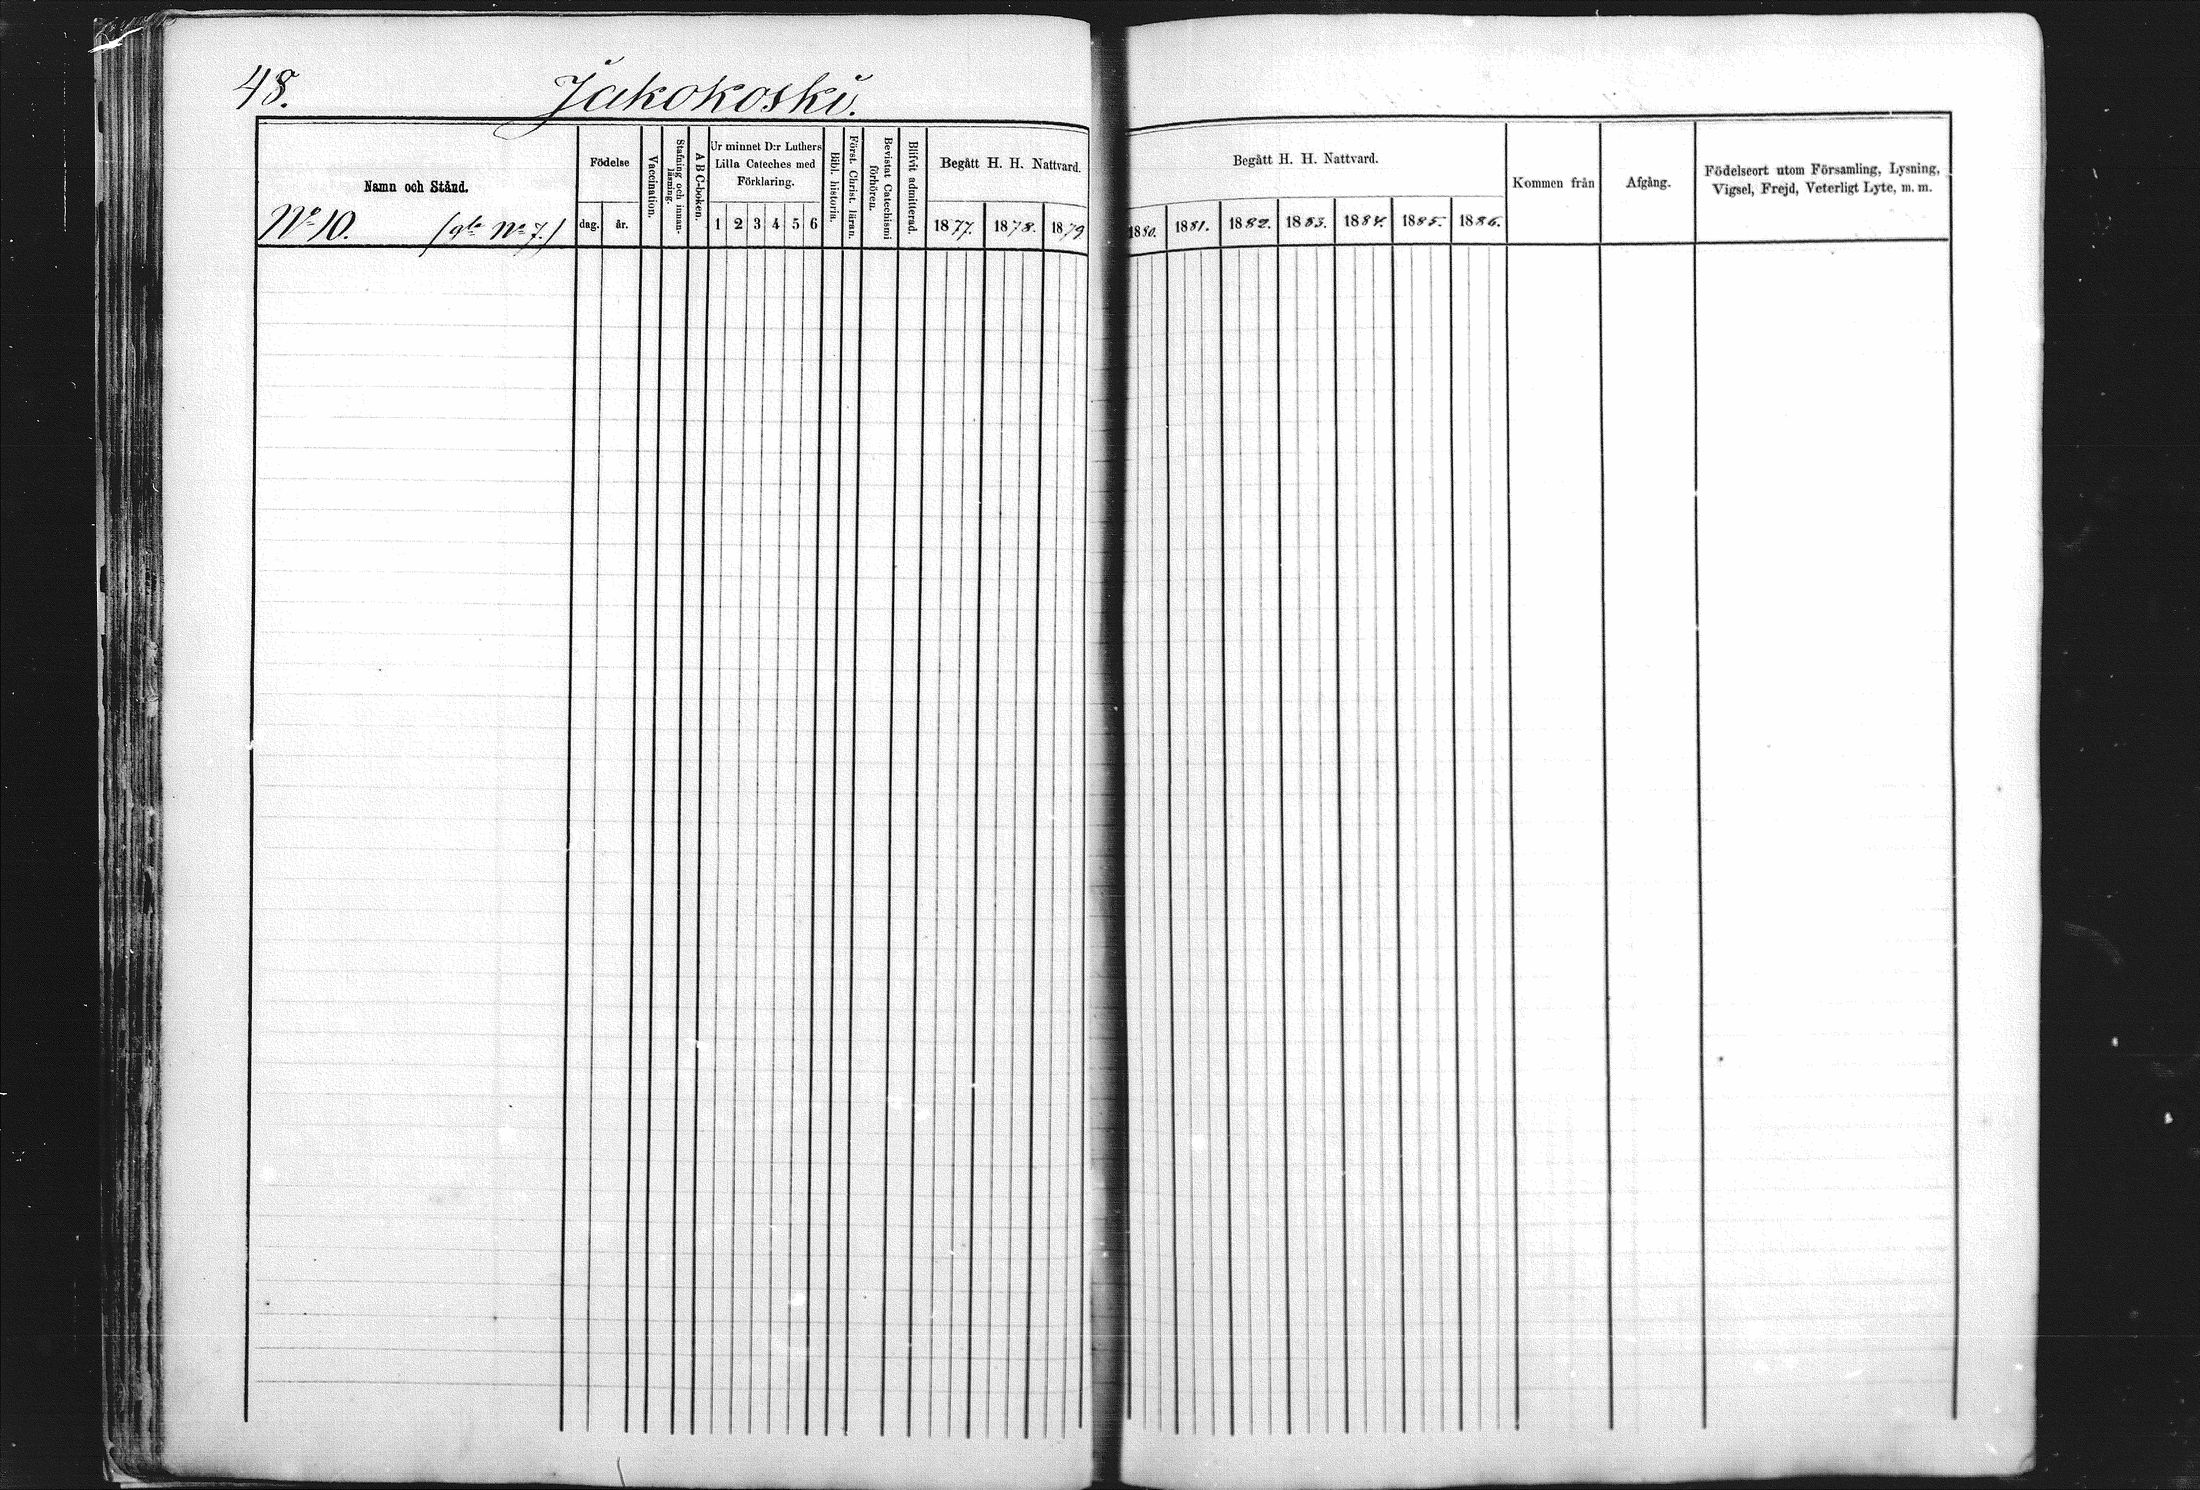 48. Jakokoski.
Namn och Stånd.
Nº 10. (gla Nº 7.)
Födelse
dag. år.
Vaccination.
Stafning och innanläsning.
ABC-boken.
Ur minnet D:r Luthers
Lilla Cateches med
Förklaring.
1 2 3 4 5 6
Bibl. historia.
Först. Christ. läran.
Bevistat Catechismi
förhören.
Blifvit admitterad.
Begått H. H. Nattvard.
1877. 1878. 1879
Begått H. H. Nattvard.
1880. 1881. 1882. 1883. 1884. 1885. 1886.
Kommen från
Afgång.
Födelseort utom Församling, Lysning,
Vigsel, Frejd, Veterligt Lyte, m. m.